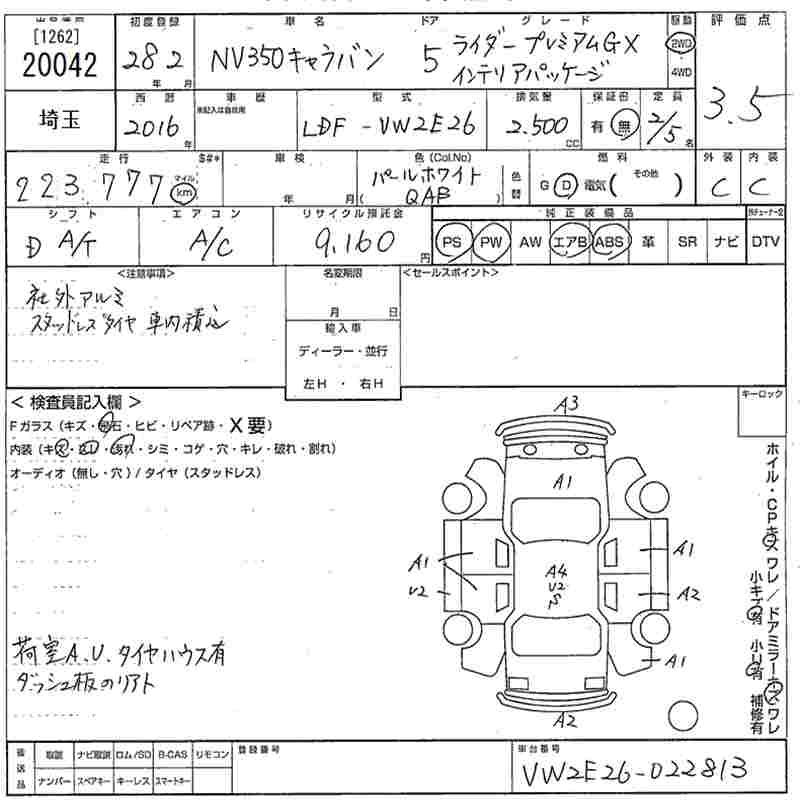 [1262]
20042
初度登録
28 2
年 月
車 名
NV350キャラバン
ドア
5
グレード
ライダー プレミアムGX
インテリアパッケージ
駆動
2WD
4WD
評 価 点
3.5
埼玉
西 暦
2016
年
車 歴
未記入は自家用
型 式
LDF - VW2E26
排気量
2.500
CC
保証書
有 無
定 員
2/5
名
走 行
S#*
223,777
マイル
km
車 検
年 月
色 (Col.No)
パールホワイト
( QAB )
色替
燃 料
G D 電気 ( その他 )
外 装
C
内 装
C
シ フ ト
D A/T
エ ア コ ン
A/C
リサイクル預託金
9,160
円
純 正 装 備 品
PS PW AW エアB ABS 革 SR ナビ
DTV
<注意事項>
社外アルミ
スタッドレスタイヤ 車内積込
名変期限
月 日
輸 入 車
ディーラー・並行
左H ・ 右H
<セールスポイント>
< 検査員記入欄 >
Fガラス (キズ・飛石・ヒビ・リペア跡・X要)
内装 (キズ・スレ・汚れ・シミ・コゲ・穴・キレ・破れ・割れ)
オーディオ (無し・穴) / タイヤ (スタッドレス)
キーロック
A3
A1
A1
U2
A4
U2
S
A1
A2
A1
A2
ホイル・CPキズ ワレ / ドアミラーキズ ワレ
小キズ有 小U有 補修有
荷室A.U.タイヤハウス有
ダッシュ板のリアト
後送品
取説 ナビ取説 ロム/SD B-CAS リモコン
ナンバー スペアキー キーレス スマートキー
登録番号
車台番号
VW2E26-022813